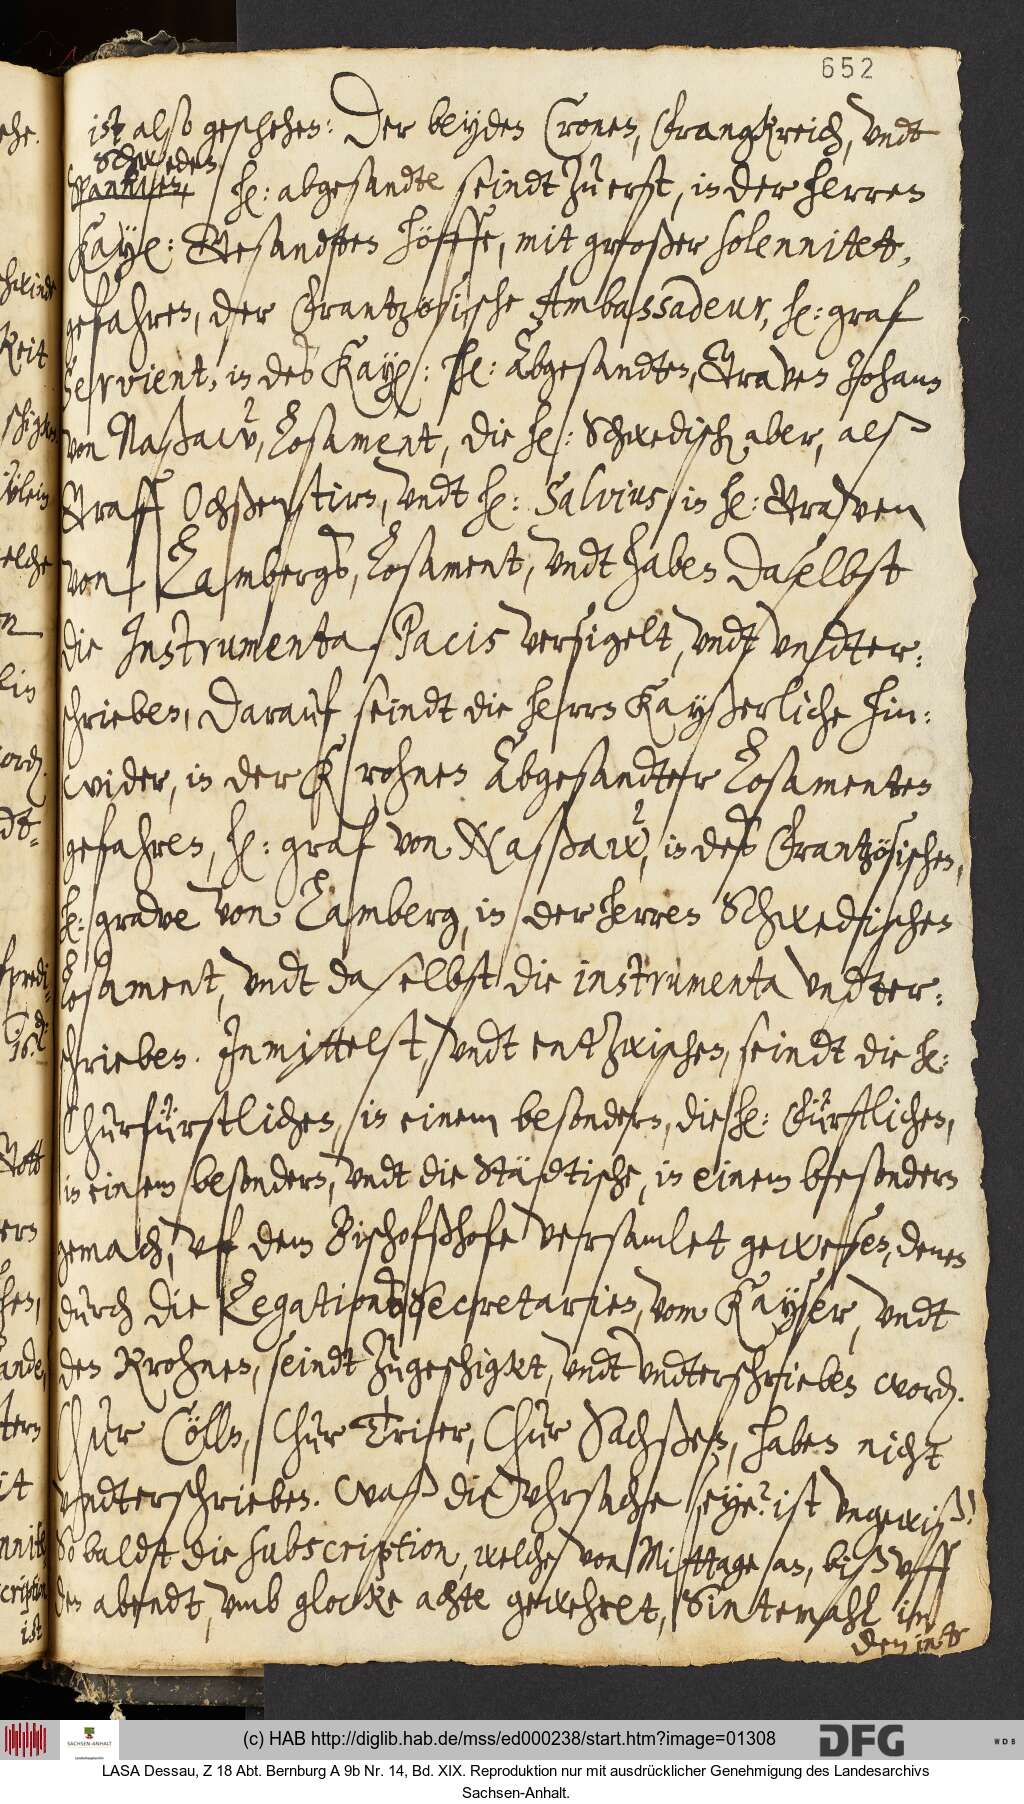 652
ist also geschehen: Der beyden Cronen, Franckreich, undt
Schweden
Spannien H: abgesandte seindt zu erst, in der Herren
Kayß: Gesandten höffe, mit großer solennitet,
gefahren, der Frantzösische Ambassadeur, H: graf
Servient, in des Kayß: H: Abgesandten, Graven Johans
von Naßaw, Losament, die H: Schwedisch aber, alß
Graff Ochßenstirn, undt H: Salvius, in H: Graven
von Lambergs, Losament, undt haben daselbst
die Instrumenta Pacis versigelt, undt undter-
schrieben, Darauf seindt die Herrn Kayßerliche hin-
wider, in der Krohnen Abgesandter Losamenten
gefahren, H: graf von Naßaw, in deß Frantzösischen,
H: grave von Lamberg, in der Herren Schwedischen
Losament, undt daselbst die instrumenta undter-
schrieben. Inmittelst, undt entzwischen, seindt die H:
Churfürstlichen, in einem besondern, die H: Fürstlichen,
in einem besondern, undt die Städtische, in einem besondern
gemach, uf dem Bischofßhofe versamlet gewesen, denen
durch die Legations Secretarien, vom Kayser, undt
den Krohnen, seindt zugeschigkt, undt undterschrieben word.
Chur Cölln, Chur Trier, Chur Sachßen, haben nicht
undterschrieben. Waß die Uhrsache seye? ist ungewiß!
So baldt die subscription, welche von Mittage an, biß uff
den abendt, umb glocke achte gewehret, Sintemahl im
den intr
(c) HAB http://diglib.hab.de/mss/ed000238/start.htm?image=01308
SACHSEN-ANHALT
DFG
WDB
LASA Dessau, Z 18 Abt. Bernburg A 9b Nr. 14, Bd. XIX. Reproduktion nur mit ausdrücklicher Genehmigung des Landesarchivs
Sachsen-Anhalt.